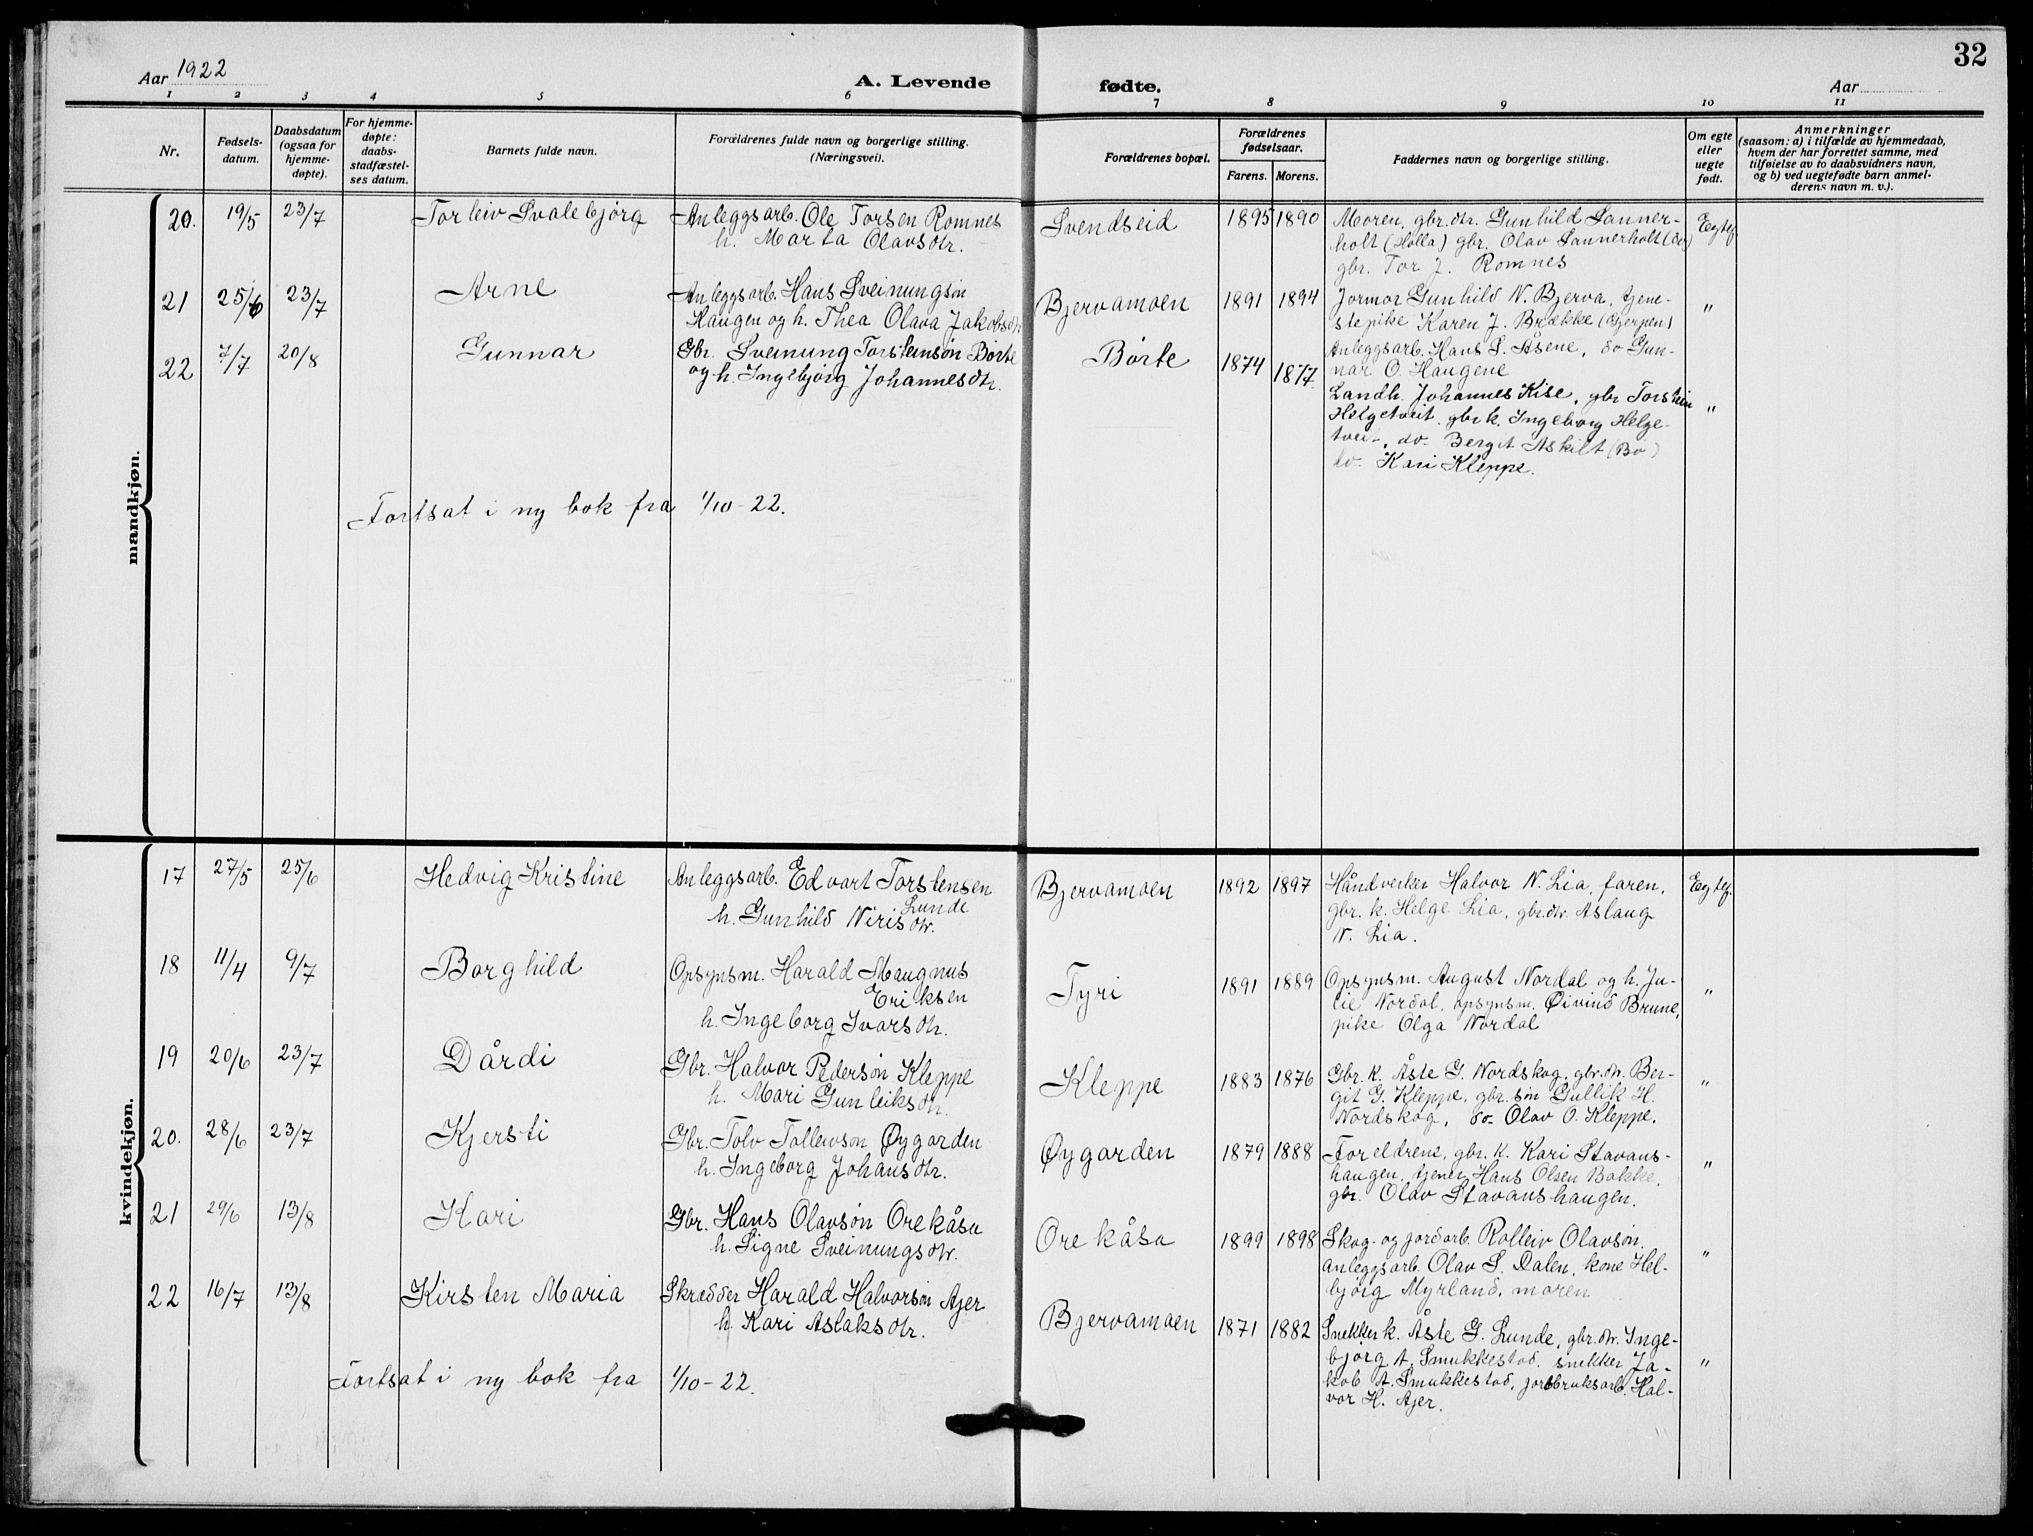 32
Aar 1922
A. Levende fødte.
Aar
1 2 3 4 5 6 7 8 9 10 11
Nr.
Fødsels-
datum.
Daabsdatum
(ogsaa for
hjemme-
døpte).
For hjemme-
døpte:
daabs-
stadfæstel-
ses datum.
Barnets fulde navn.
Forældrenes fulde navn og borgerlige stilling.
(Næringsvei).
Forældrenes bopæl.
Forældrenes
fødselsaar.
Farens. Morens.
Faddernes navn og borgerlige stilling.
Om egte
eller
uegte
født.
Anmerkninger
(saasom: a) i tilfælde av hjemmedaab,
hvem der har forrettet samme, med
tilføielse av to daabsvidners navn,
og b) ved uegtefødte barn anmel-
derens navn m. v.).
mandkjøn.
20. 19/5 23/7 Torleiv Svalebjørg
Anleggsarb. Ole Torsen Romnes
h. Marta Olavsdtr.
Svendseid 1895 1890
Moren, gbr. dtr. Gunhild Sanner-
holt (Holla) gbr. Olav Sannerholt
gbr. Tor J. Romnes
Egtef
21 25/6 23/7 Arne
Anleggsarb. Hans Sveinungsøn
Haugen og h. Thea Olava Jakobsdtr
Bjervamoen 1891 1894
Jormor Gunhild N. Bjerva, tjene-
stepike Karen J. Brække (Gjerpen)
Anleggsarb. Hans S. Åsene, do Gun-
nar O. Haugene
"
22 7/7 20/8 Gunnar
Gbr. Sveinung Torsteinsøn Børte
og h. Ingebjørg Johannesdtr.
Børte 1874 1877.
Landh. Johannes Kise, gbr Torstein
Helgetveit, gbr k. Ingeborg Helge-
tveit, do. Berget Askilt (Bø)
do. Kari Kleppe.
"
Fortsat i ny bok fra 1/10-22.
kvindekjøn.
17 27/5 25/6 Hedvig Kristine
Anleggsarb. Edvart Torstensen
Lunde
h. Gunhild Nirisdtr.
Bjervamoen 1892 1897
Håndverker Halvor N. Lia, faren,
gbr. k. Helge Lia, gbr. dtr. Aslaug
N. Lia.
Egtef.
18 11/4 9/7 Borghild
Opsynsm. Harald Maugnus
Eriksen
h. Ingeborg Ivarsdtr.
Tyri 1891 1889
Opsynsm. August Nordal og h. Ju-
lie Nordal, opsynsm. Øivind Brune,
pike Olga Nordal
"
19 20/6 23/7 Dårdi
Gbr. Halvor Pedersøn Kleppe
h. Mari Gunleiksdtr.
Kleppe 1883 1876
Gbr. k. Åste G. Nordskog, gbr. dtr. Ber-
git G. Kleppe, gbr. søn Gullik H.
Nordskog, do. Olav O. Kleppe.
"
20. 28/6 23/7 Kjersti
Gbr. Tolv Tollevsøn Øygarden
h. Ingeborg Johansdtr.
Øygarden 1879 1888
Foreldrene, gbr. k. Kari Stavans-
haugen, tjener Hans Olsen Bakke,
gbr. Olav Stavanshaugen.
"
21 29/6 13/8 Kari
Gbr. Hans Olavsøn Orekåsa
h. Signe Sveinungsdtr.
Orekåsa 1899 1898
Skog- og jordarb. Rolleiv Olavsøn,
anleggsarb. Olav S. Dalen, kone Hel-
bjørg Myrland, moren
"
22 16/7 13/8 Kirsten Maria
Skrædder Harald Halvorsøn Ajer
h. Kari Aslaksdtr.
Bjervamoen 1871 1882
Snekker k. Åste G. Lunde, gbr. dtr. Inge-
bjørg A. Smukkestad, snekker Ja-
kob A. Smukkestad, jordbruksarb. Hal-
vor H. Ajer.
"
Fortsat i ny bok fra 1/10-22.